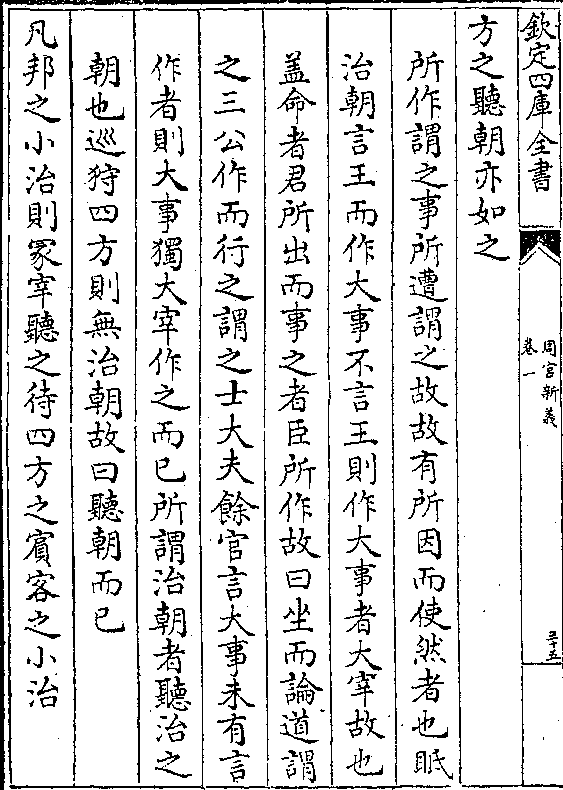 欽定四庫全書
周官新義
卷一
三十五
方之聽朝亦如之
所作謂之事所遭謂之故故有所因而使然者也眡
治朝言王而作大事不言王則作大事者大宰故也
蓋命者君所出而事之者臣所作故曰坐而論道謂
之三公作而行之謂之士大夫餘官言大事未有言
作者則大事獨大宰作之而已所謂治朝者聽治之
朝也巡狩四方則無治朝故曰聽朝而已
凡邦之小治則冢宰聽之待四方之賓客之小治